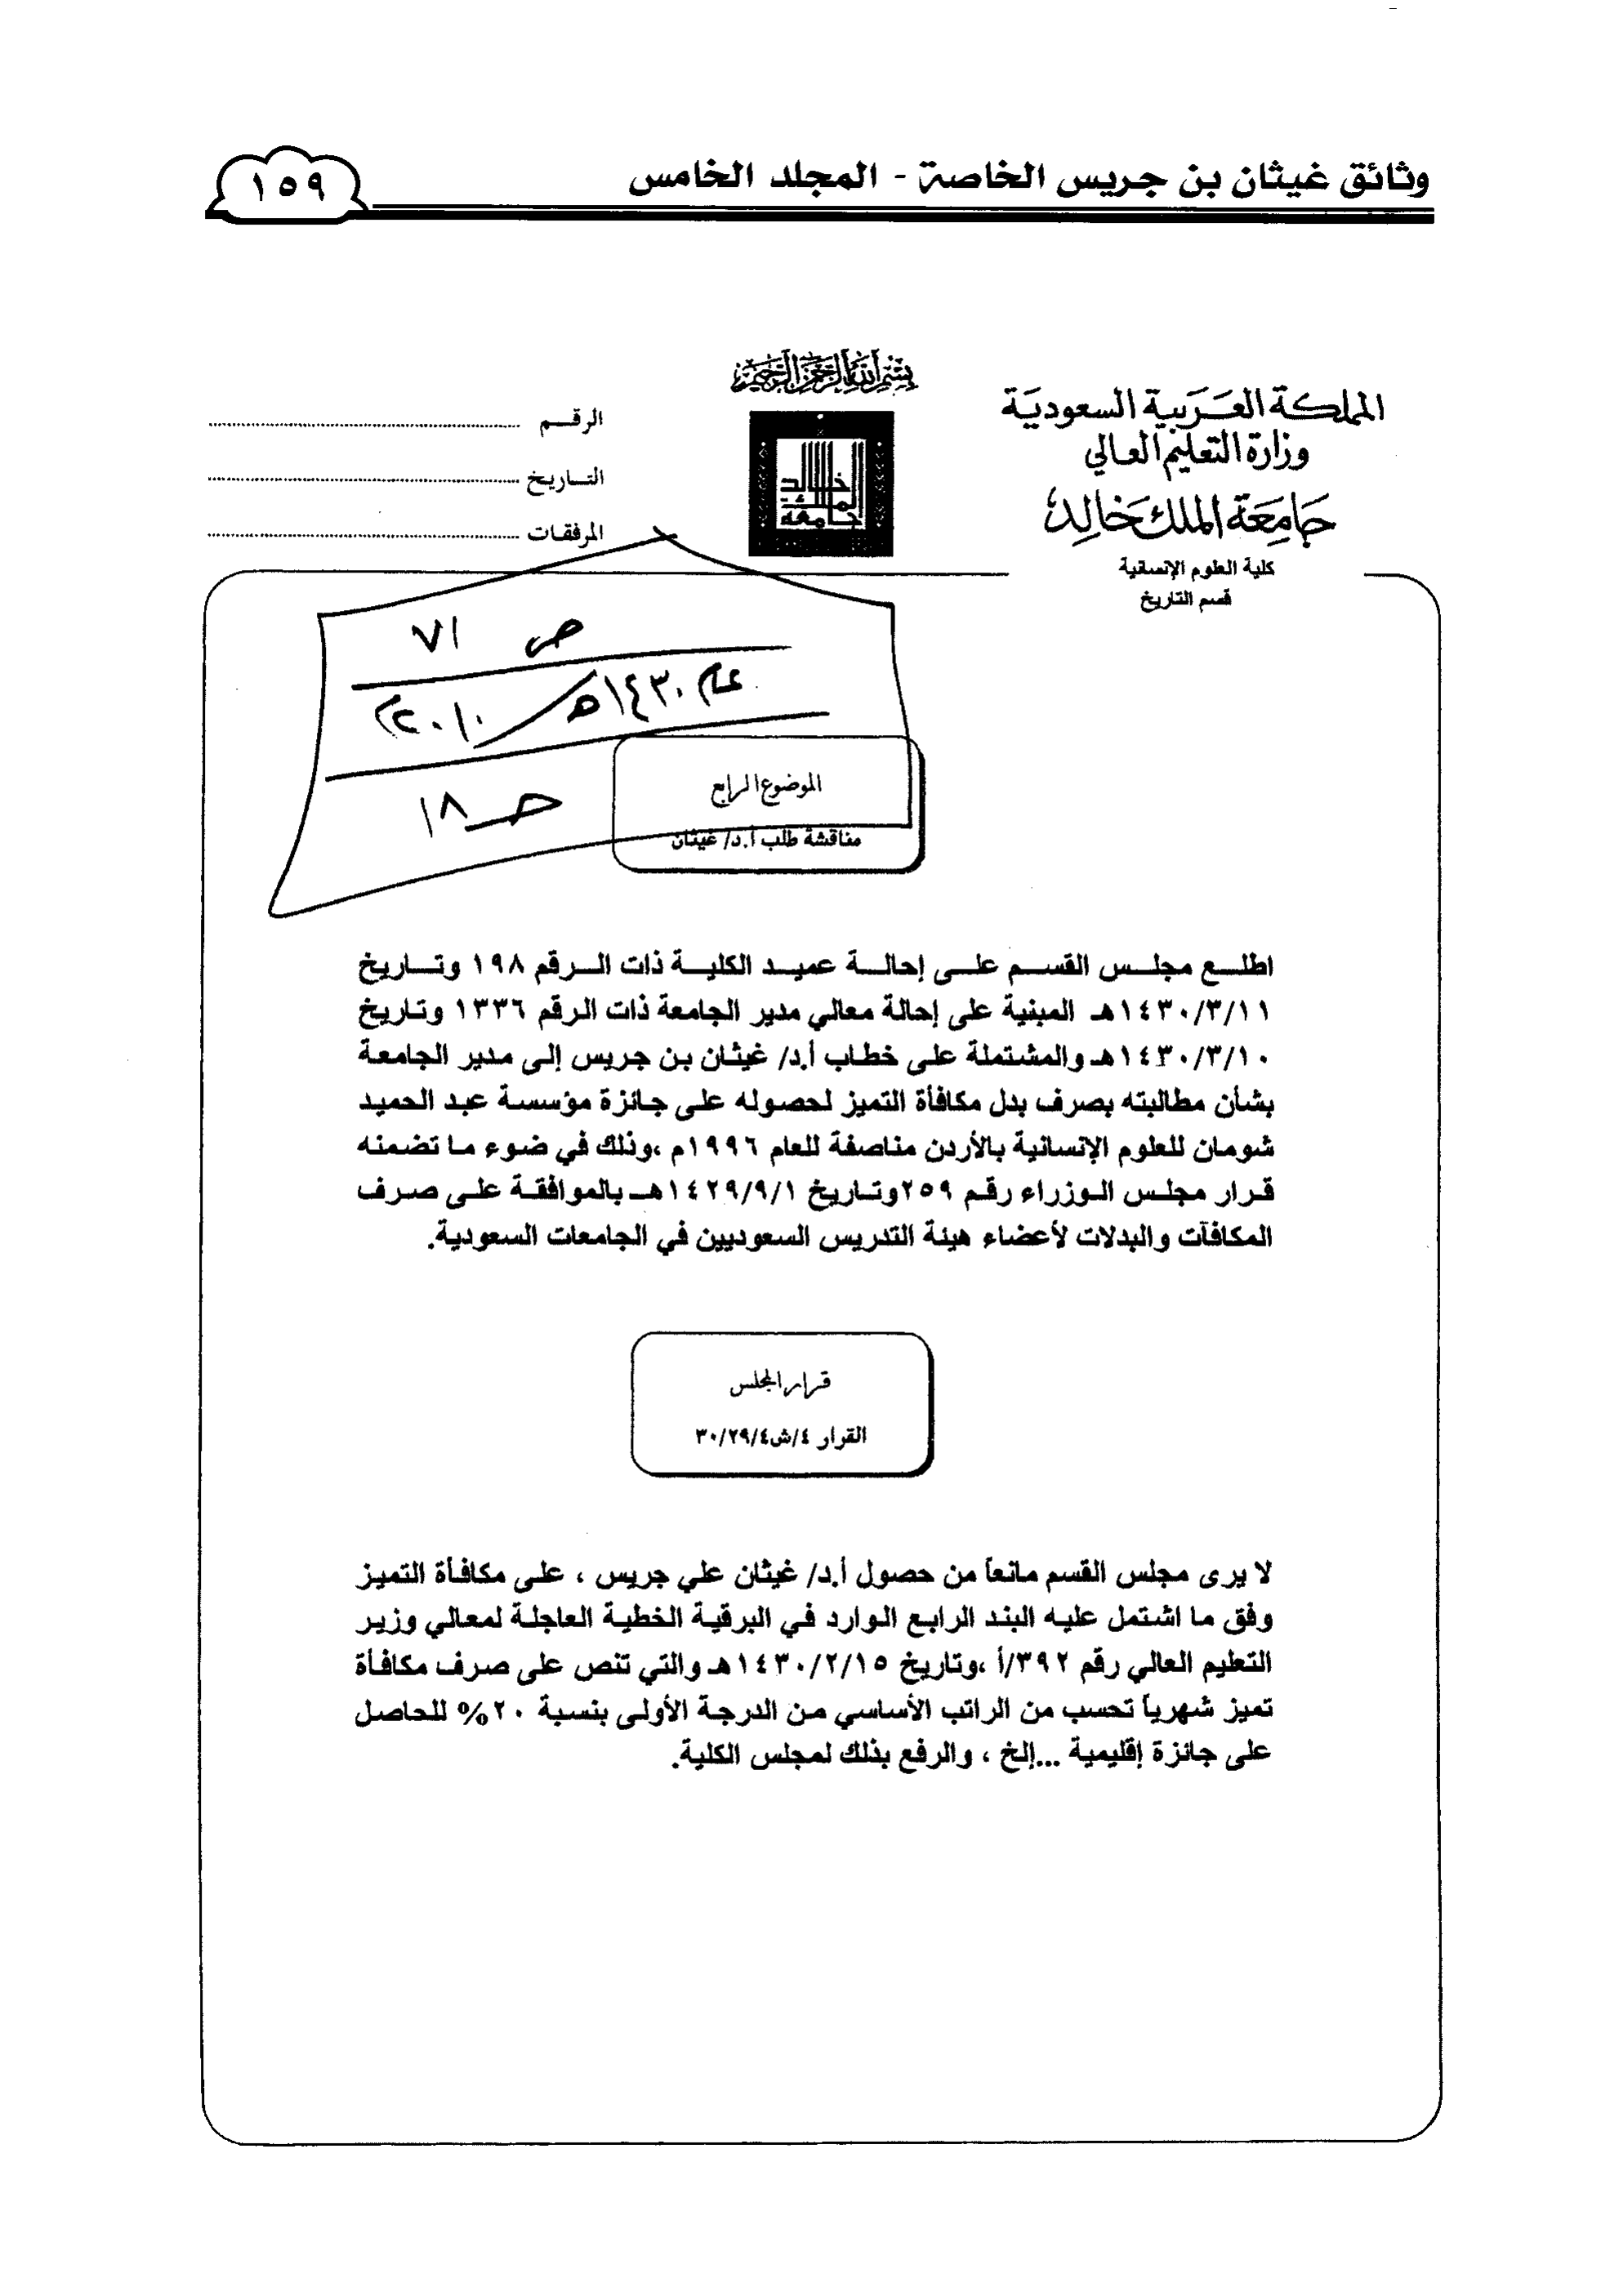 وثائق غيثان بن جريس الخاصة - المجلد الخامس
١٥٩
بسم الله الرحمن الرحيم
المملكة العربية السعودية
وزارة التعليم العالي
جامعة الملك خالد
كلية العلوم الإنسانية
قسم التاريخ
جامعة الملك خالد
الرقم
التاريخ
المرفقات
ص ٧١
عام ١٤٣٠هـ / ٢٠١٠م
حـ ١٨
الموضوع الرابع
مناقشة طلب أ.د/ غيثان
اطلع مجلس القسم على إحالة عميد الكلية ذات الرقم ١٩٨ وتاريخ
١٤٣٠/٣/١١هـ المبنية على إحالة معالي مدير الجامعة ذات الرقم ١٣٣٦ وتاريخ
١٤٣٠/٣/١٠هـ والمشتملة على خطاب أ.د/ غيثان بن جريس إلى مدير الجامعة
بشأن مطالبته بصرف بدل مكافأة التميز لحصوله على جائزة مؤسسة عبد الحميد
شومان للعلوم الإنسانية بالأردن مناصفة للعام ١٩٩٦م ،وذلك في ضوء ما تضمنه
قرار مجلس الوزراء رقم ٢٥٩وتاريخ ١٤٢٩/٩/١هـ بالموافقة على صرف
المكافآت والبدلات لأعضاء هيئة التدريس السعوديين في الجامعات السعودية.
قرار المجلس
القرار ٤/ش٣٠/٢٩/٤
لا يرى مجلس القسم مانعاً من حصول أ.د/ غيثان علي جريس ، على مكافأة التميز
وفق ما اشتمل عليه البند الرابع الوارد في البرقية الخطية العاجلة لمعالي وزير
التعليم العالي رقم ٣٩٢/أ ،وتاريخ ١٤٣٠/٢/١٥هـ والتي تنص على صرف مكافأة
تميز شهرياً تحسب من الراتب الأساسي من الدرجة الأولى بنسبة ٢٠% للحاصل
على جائزة إقليمية ...إلخ ، والرفع بذلك لمجلس الكلية.